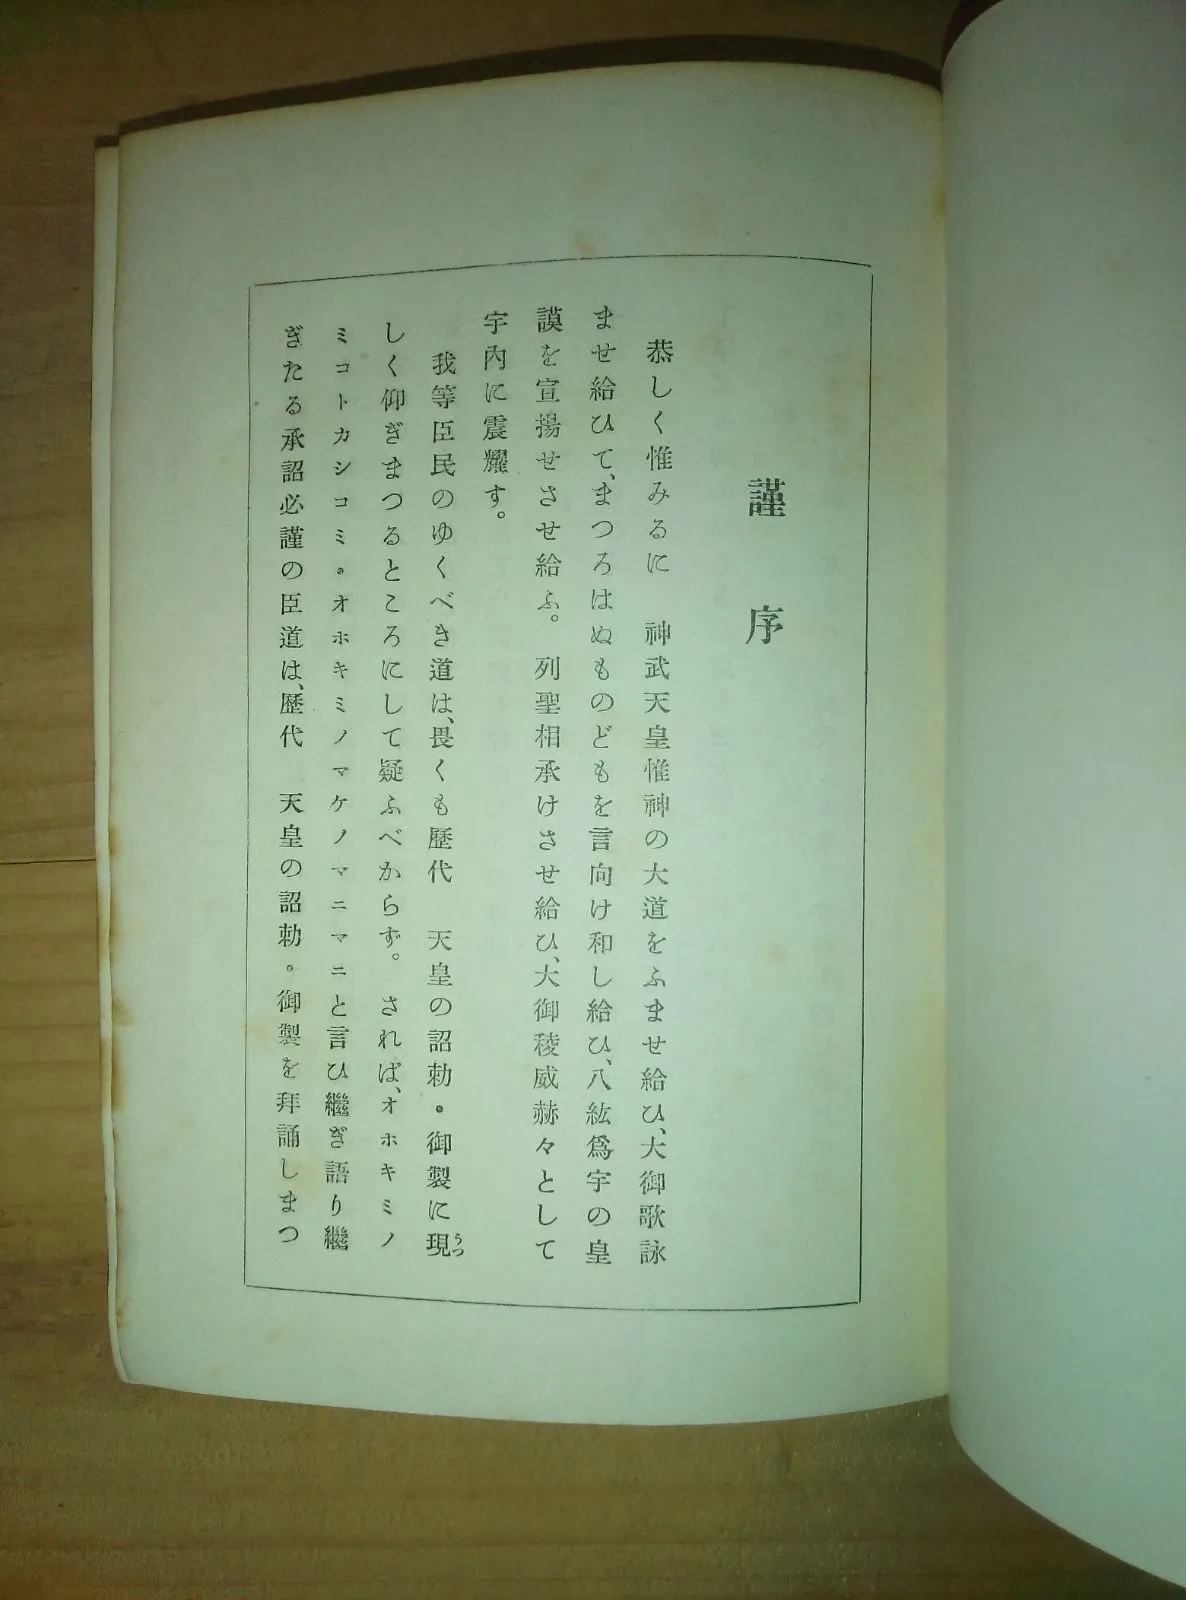 謹序
恭しく惟みるに　神武天皇惟神の大道をふませ給ひ、大御歌詠
ませ給ひて、まつろはぬものどもを言向け和し給ひ、八紘爲宇の皇
謨を宣揚せさせ給ふ。列聖相承けさせ給ひ、大御稜威赫々として
宇內に震耀す。
我等臣民のゆくべき道は、畏くも歷代　天皇の詔勅。御製に現うつ
しく仰ぎまつるところにして疑ふべからず。されば、オホキミノ
ミコトカシコミ。オホキミノマケノマニマニと言ひ繼ぎ語り繼
ぎたる承詔必謹の臣道は、歷代　天皇の詔勅。御製を拜誦しまつ